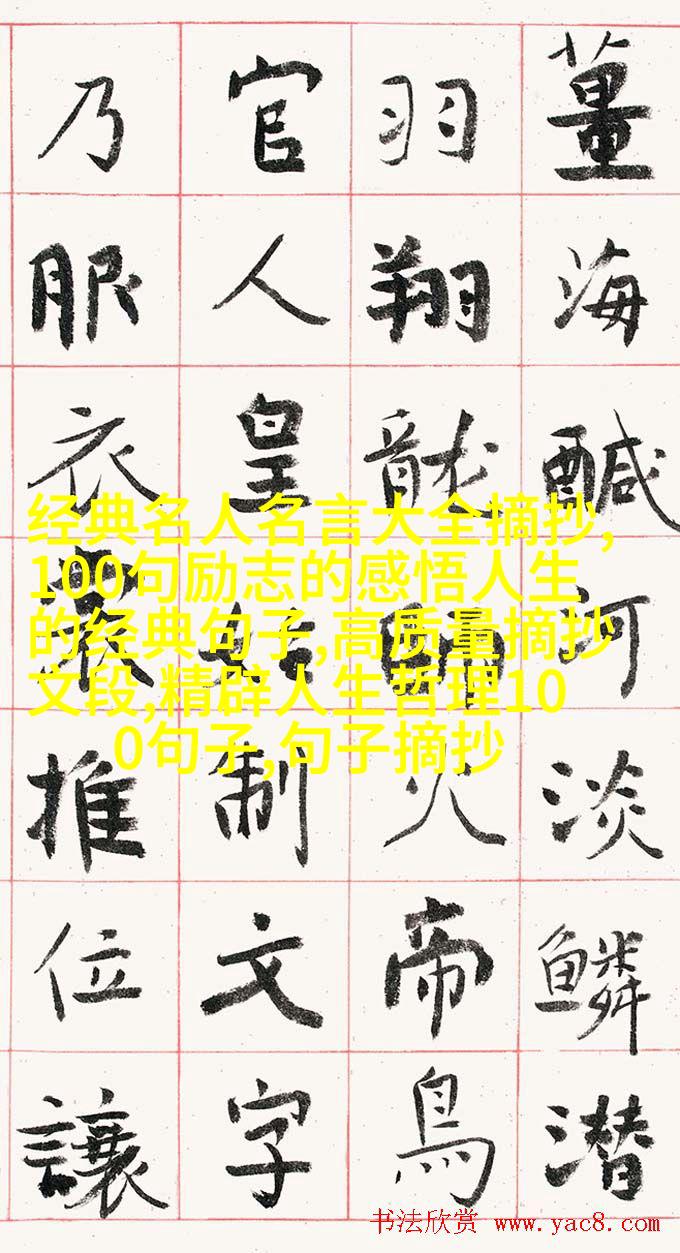 薑海鹹河淡鱗潛
羽翔龍師火帝鳥
官人皇始制文字
乃服衣裳推位讓
经典名人名言大全摘抄,
100句励志的感悟人生
的经典句子,高质量摘抄
文段,精辟人生哲理10
0句子,句子摘抄
书法欣赏 www.yac8.com